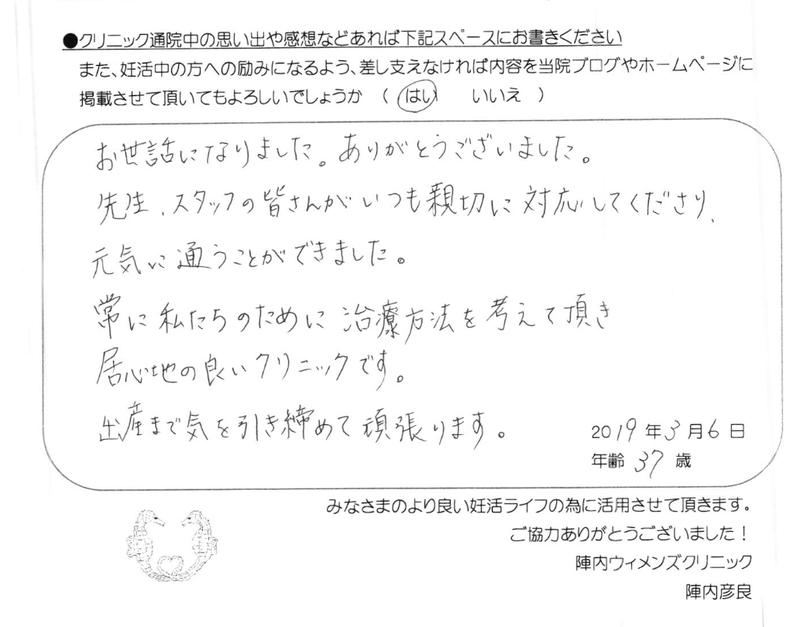 ●クリニック通院中の思い出や感想などあれば下記スペースにお書きください
また、妊活中の方への励みになるよう、差し支えなければ内容を当院ブログやホームページに
掲載させて頂いてもよろしいでしょうか （ はい いいえ ）
お世話になりました。ありがとうございました。
先生、スタッフの皆さんがいつも親切に対応してくださり、
元気に通うことができました。
常に私たちのために治療方法を考えて頂き
居心地の良いクリニックです。
出産まで気を引き締めて頑張ります。
2019年3月6日
年齢 37 歳
みなさまのより良い妊活ライフの為に活用させて頂きます。
ご協力ありがとうございました！
陣内ウィメンズクリニック
陣内彦良